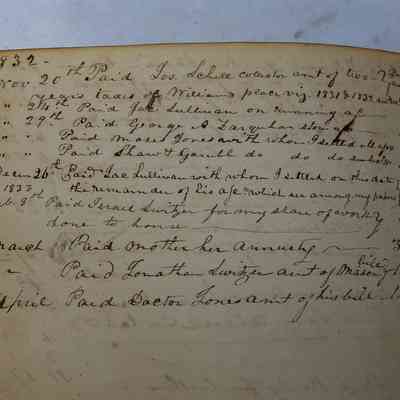 1832-
Nov. 20th Paid Jos. Schell collector amt of two
years taxes of Williams place viz. 1831 & 1832
" 24th Paid Jac. Sullivan on running a/c
" 29th Paid George A. Farquhar store a/c
" Paid Moses Jones with whom I settled
" Paid Shaw & Gamble do do do
Decem 26th Paid Jac. Sullivan with whom I settled on this date
1833 the remainder of his a/c which are among my papers
8th Paid Israel Switzer for my share of work
done to house
March 18 Paid mother her annuity
" Paid Jonathan Switzer amt of Mason bill
April Paid Doctor Jones amt of his bill